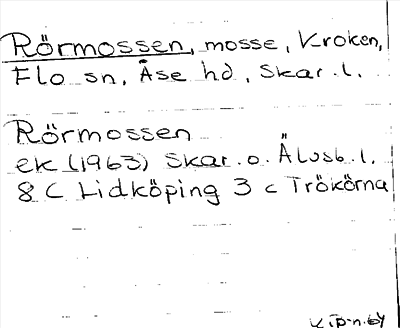 Rörmossen, mosse, Kroken,
Flo sn, Åse hd, Skar. l.
Rörmossen
ek (1963) Skar. o. Älvsb. l.
8 C Lidköping 3 c Trökörna